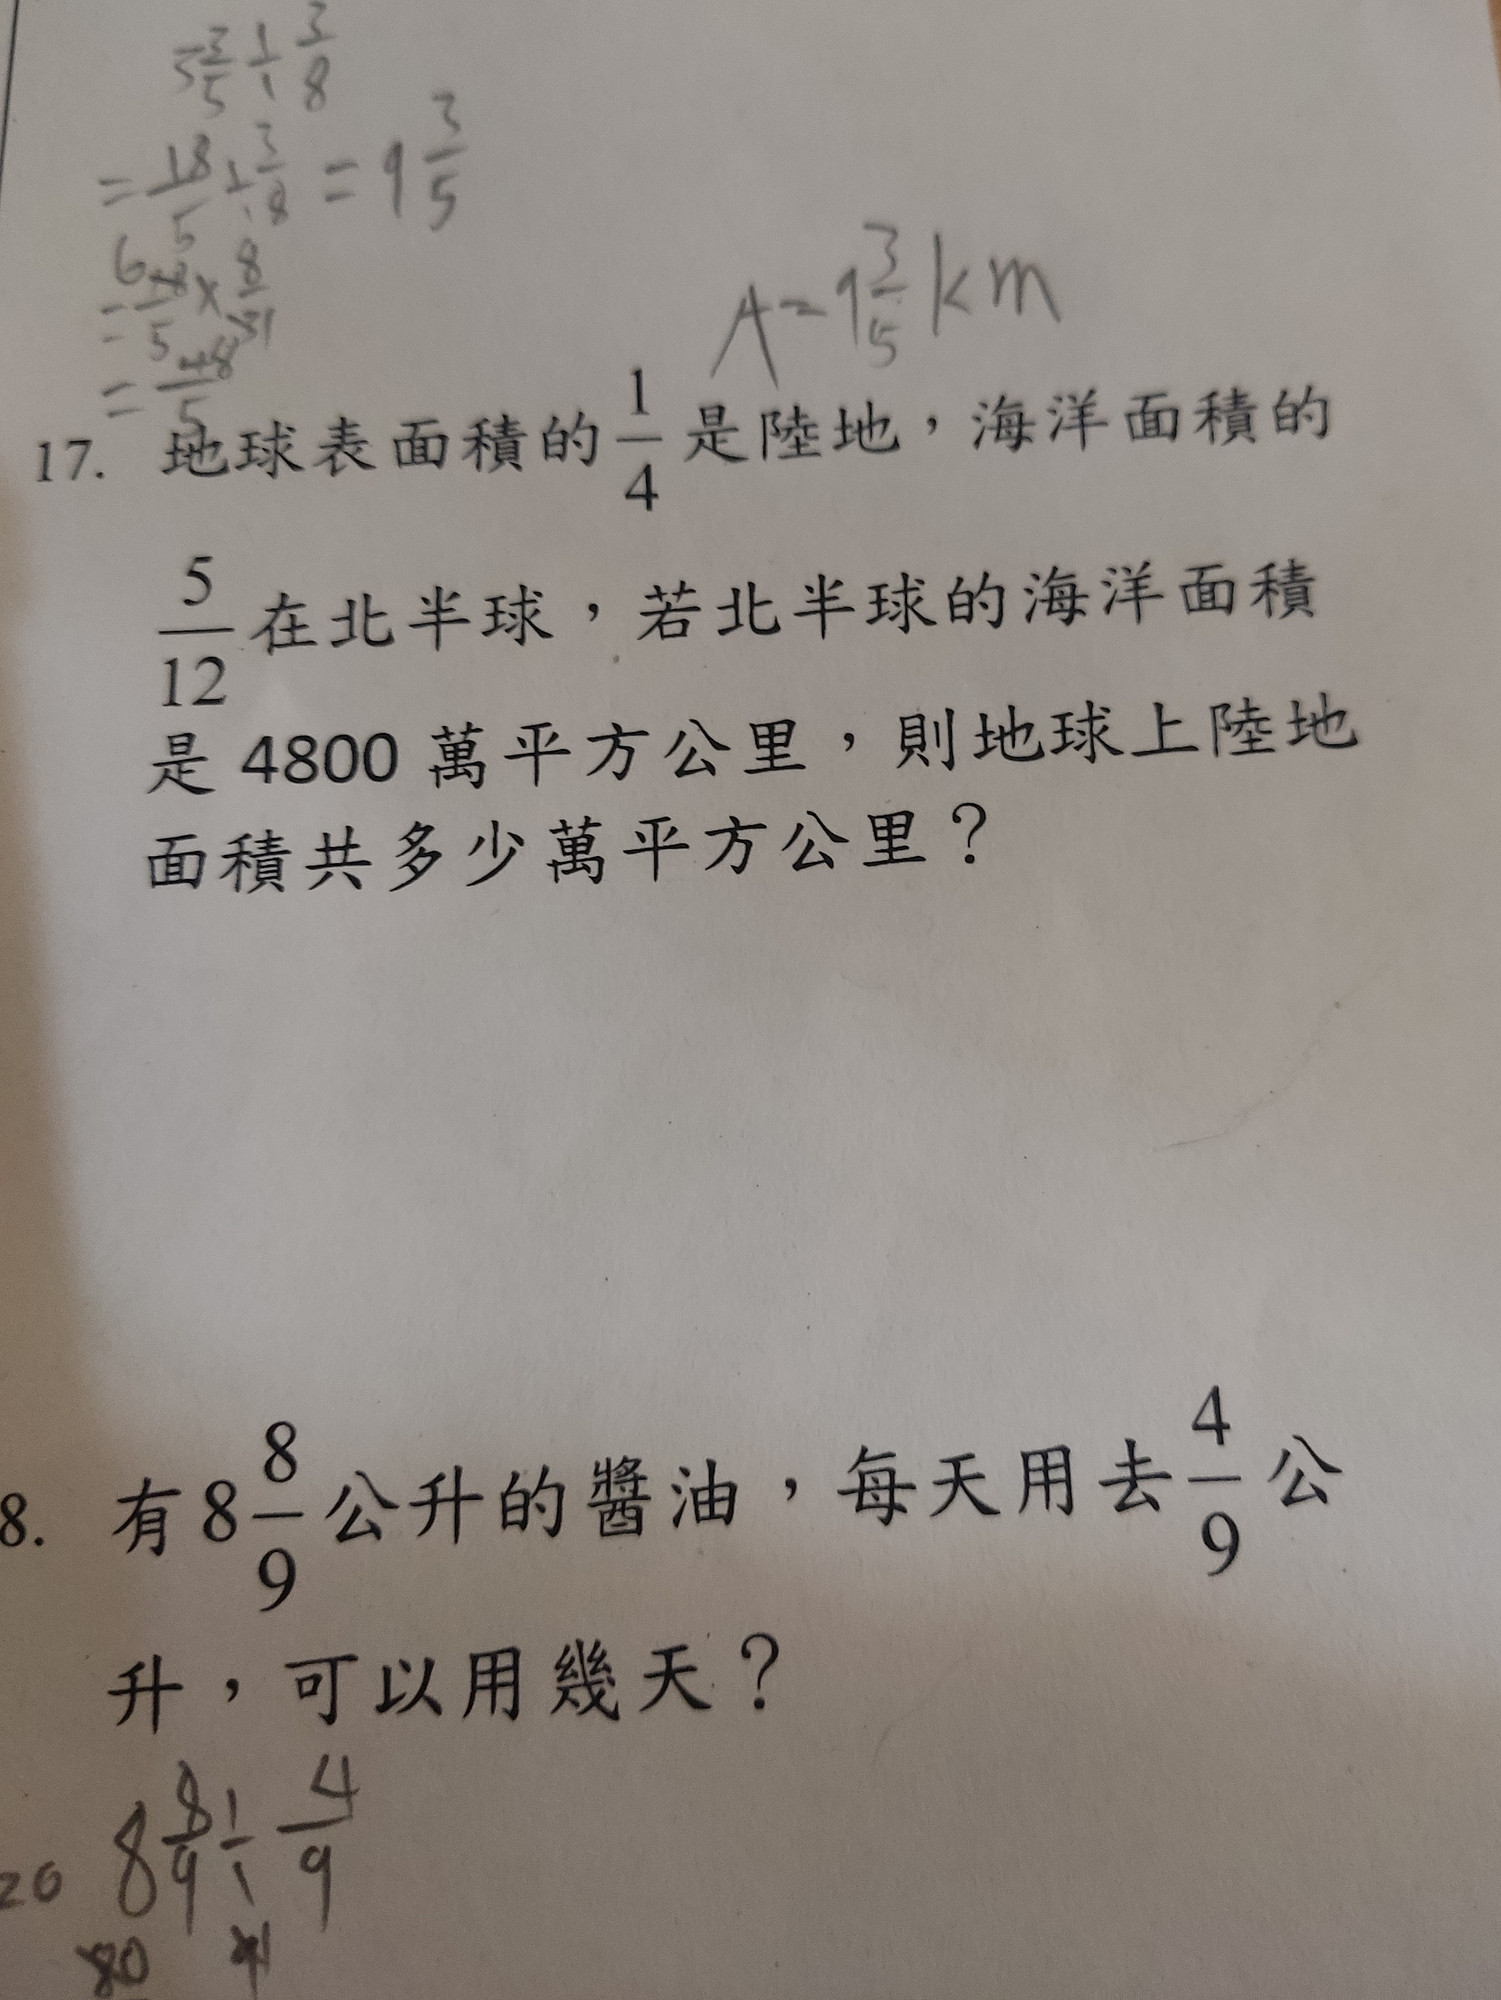 3 3/5 ÷ 3/8
= 18/5 ÷ 3/8 = 9 3/5
= 6 18/5 × 8/3 1
= 48/5
A = 9 3/5 km
17. 地球表面積的 1/4 是陸地，海洋面積的
5/12 在北半球，若北半球的海洋面積
是 4800 萬平方公里，則地球上陸地
面積共多少萬平方公里？
8. 有 8 8/9 公升的醬油，每天用去 4/9 公
升，可以用幾天？
8 8/9 ÷ 4/9
20
80